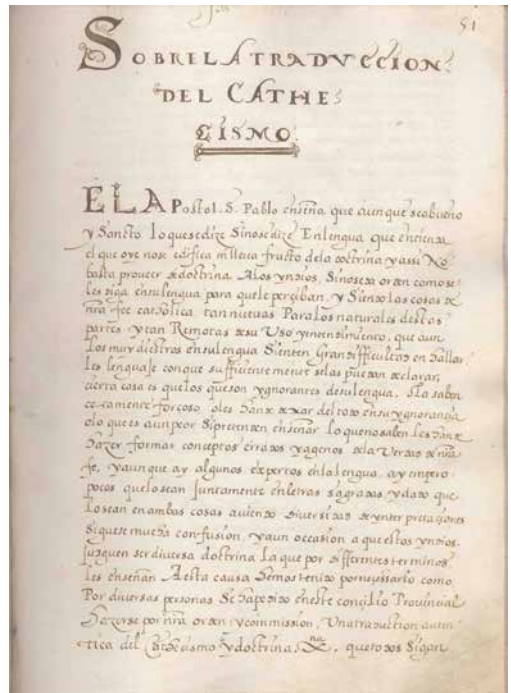 51
SOBRE LA TRADVCCION
DEL CATHE
CISMO.
EL APostol. S. Pablo enseña que aunque sea bueno
y Sancto lo que se dize Si no se dize En lengua que entienda
el que oye no se edifica ni lleua fructo de la doctrina y assi No
basta proueer de doctrina A los yndios, Si no se da orden como se
les diga en su lengua para que le perciban, y Siendo las cosas de
nra fee catholica, tan nueuas Para los naturales destas
partes y tan Remotas de su Uso y entendimiento, que aun
Los muy diestros en su lengua Sienten Gran difficultad en hallar
les lenguaje con que sufficiente mente se las puedan declarar,
cierta cosa es que los que son ygnorantes de su lengua. o la saben
cortamente forçoso, o les han de dexar del todo en su ygnorancia
o lo que es aun peor Si pretenden enseñar lo que no saben les han de
hazer formar conceptos errados y agenos de la Verdad de nra
fe, y aunque ay algunos expertos en la lengua, ay empero
pocos que lo sean juntamente en letras sagradas, y dado que
lo sean en ambas cosas auiendo diuersidad de ynterpretaçiones
Siguese mucha confusion, y aun occasion a que estos yndios
juzguen ser diuersa doctrina La que por differentes terminos
les enseñan A esta causa hemos tenido por nessesario como
Por diuersas personas Se ha pedido en este conçilio Prouincial
hazerse por nra orden y commission, Una traduction auten
tica del Cathecismo y doctrina Xna, que todos Sigan